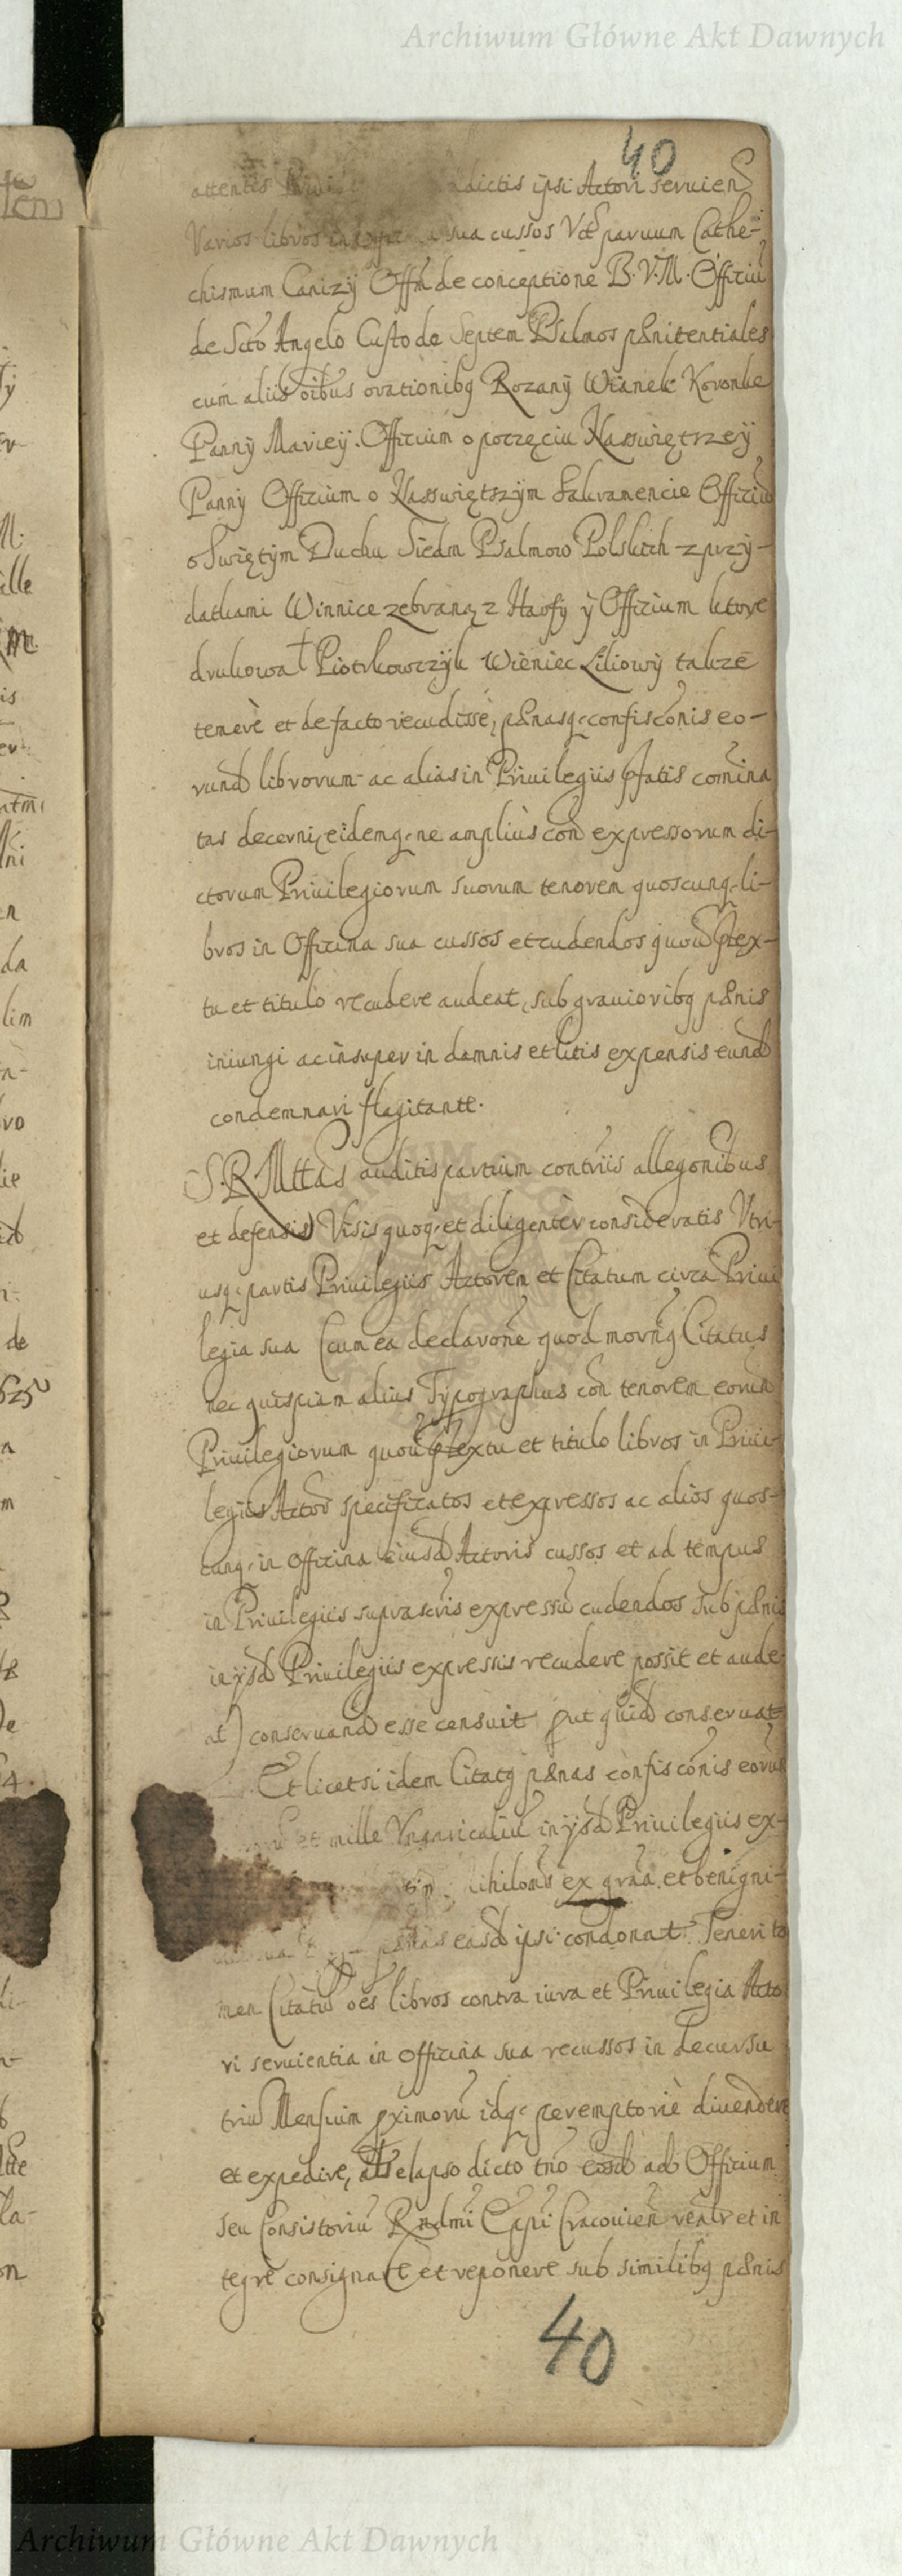 Archiwum Główne Akt Dawnych
40
attentis ndictis ipsi Actori seruien
Varios libros sua cussos Vt paruum Cathe-
chismum Canizÿ Offm de conceptione B.V.M. Officiũ
de Scto Angelo Custode Septem Psalmos pænitentiales
cum aliis oibus orationibq Rozanÿ Wianek Koronke
Pannÿ Marieÿ. Officium o poczęciu Nasswiętrzeÿ
Pannÿ Officium o Nasswiętszÿm Sakramencie Officiũ
o Swiętÿm Duchu Siedm Psalmow Polskich z przÿ-
datkami Winnice zebraną z Harfÿ ÿ Officium ktore
drukowat Piotrkowczÿk Wieniec Liliowÿ takze
tenere et de facto recudisse, pænasq confisconis eo-
rund librorum ac alias in Priuilegiis pfatis comina
tas decerni eidemq ne amplius con expressorum di-
ctorum Priuilegiorum suorum tenorem quoscunq li-
bros in Officina sua cussos et cudendos quouis ptex-
tu et titulo recudere audeat, sub grauioribq pænis
iniungi ac insuper in damnis et litis expensis eund
condemnari flagitante.
S.R.Mttas auditis partium contriis allegonibus
et defensis Visis quoq et diligenter consideratis Vtri-
usq partis Priuilegiis Actorem et Citatum circa Priui
legia sua (cum ea declarone quod mornq Citatus
nec quispiam alius Typographus con tenorem eorund
Priuilegiorum quouis ptextu et titulo libros in Priui-
legiis Actoris specificatos et expressos ac alios quos-
cunq in Officina eiusd Actoris cussos et ad tempus
in Priuilegiis suprascris expressũ cudendos sub pænis
in ÿsd Priuilegiis expressis recudere possit et aude
at) conseruand esse censuit put quid conseruat
Et licet si idem Citatq pænas confisconis eorun
et mille Vngaricaliũ in ÿsd Priuilegiis ex-
ihilons ex graa et benigni-
pænas easd ipsi condonat. Teneri ta
men Citatus oes libros contra iura et Priuilegia Acto
ri seruientia in Officina sua recussos in decursu
triũ Mensium pximorũ idq peremptorie diuendere
et expedire, als elapso dicto tno eosd ad Officium
seu Consistoriũ Rndmi Eppi Cracouien realr et in
tegre consignare et reponere sub similibq pænis
40
Archiwum Główne Akt Dawnych